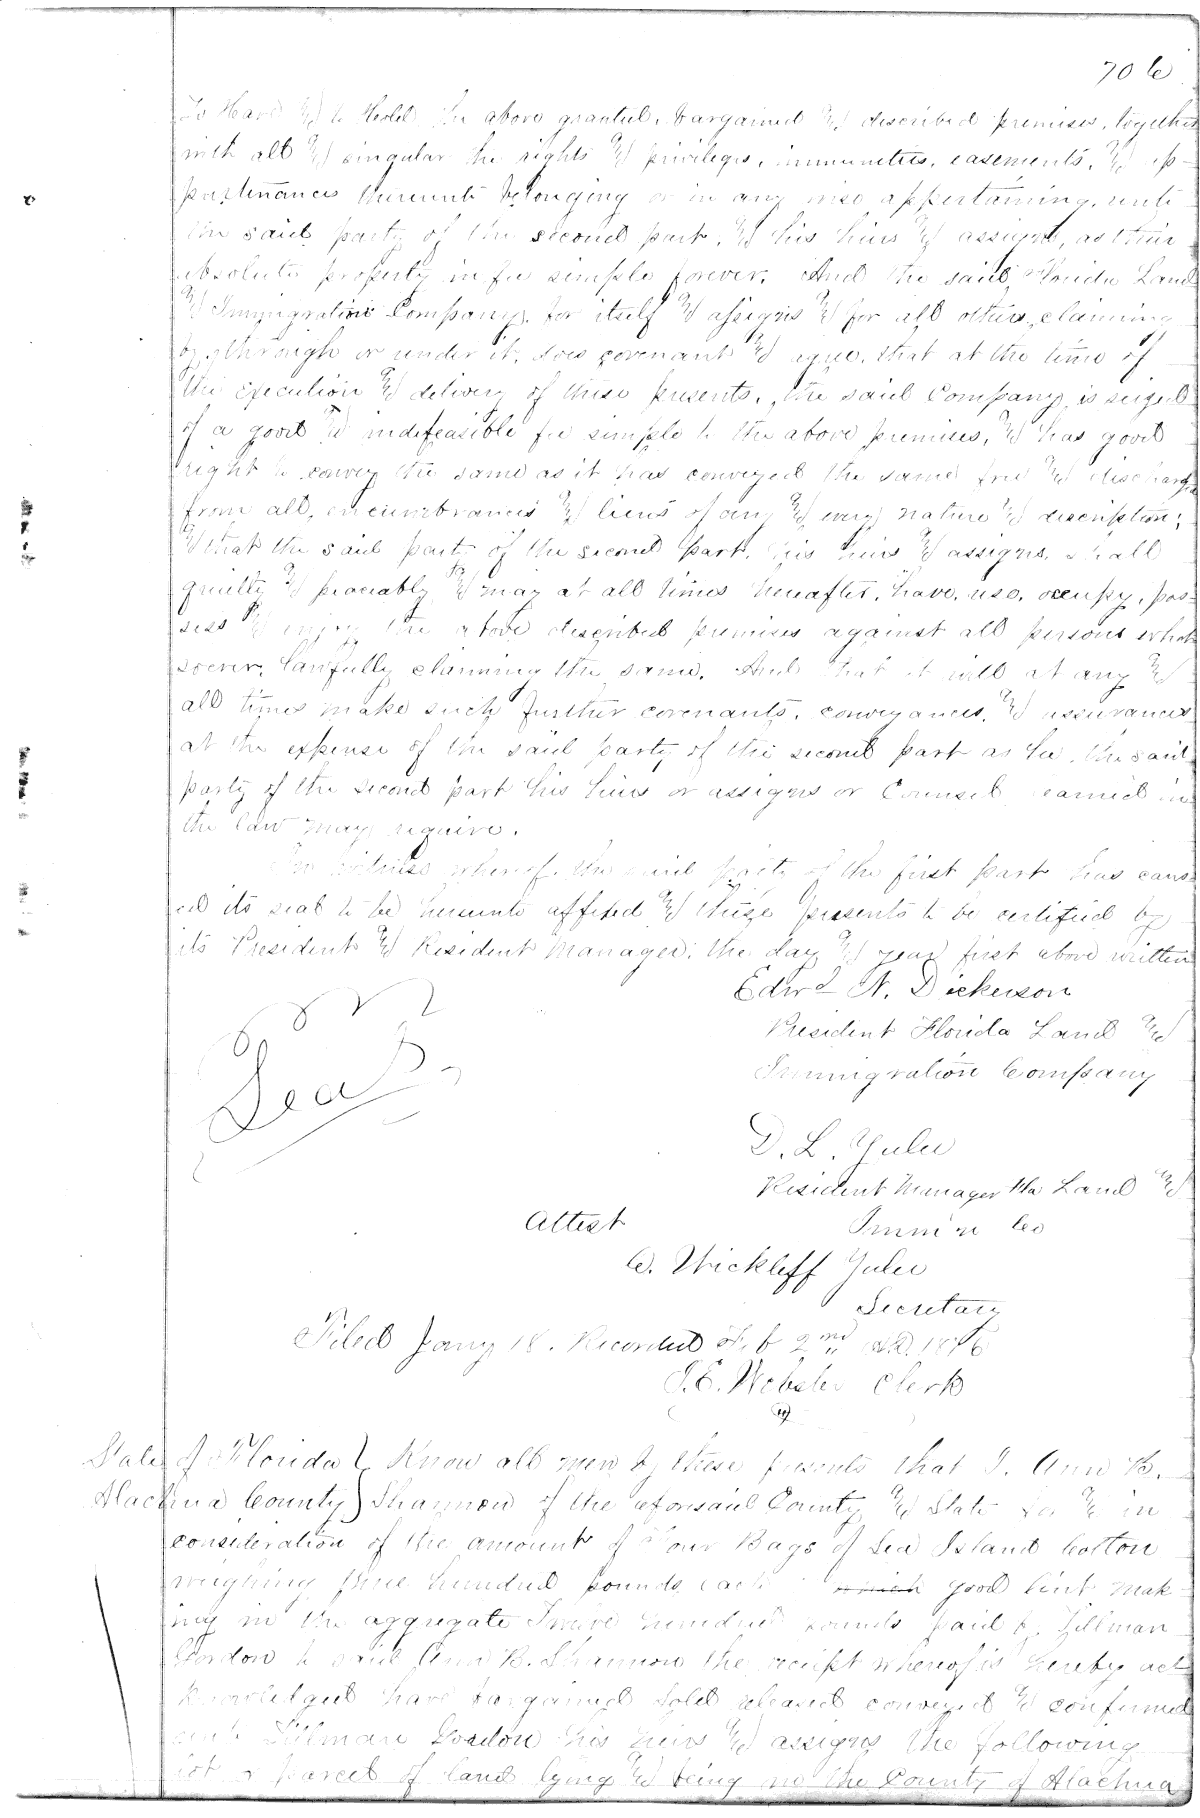 706
To Have & to Hold the above granted, bargained & described premises, together
with all & singular the rights & privileges, immunities, easements, & ap-
purtenances thereunto belonging or in any wise appertaining, unto
the said party of the second part, & his heirs & assigns, as their
absolute property in fee simple forever. And the said Florida Land
& Immigration Company, for itself & assigns & for all others, claiming
by, through or under it, does covenant & agree, that at the time of
the execution & delivery of these presents, the said Company, is seized
of a good & indefeasible fee simple to the above premises, & has good
right to convey the same as it has conveyed the same free & discharged
from all, encumbrances & liens of any & every nature & description;
& that the said party of the second part, his heirs & assigns, shall
quietly & peaceably & may at all times hereafter, have, use, occupy, pos-
sess & enjoy the above described premises against all persons what-
soever, lawfully claiming the same. And that it will at any &
all times make such further covenants, conveyances, & assurances
at the expense of the said party of the second part as he, the said
party of the second part his heirs or assigns or Counsel learned in
the law may require.
In Witness whereof, the said party of the first part has caus-
ed its seal to be hereunto affixed & these presents to be certified by
its President & Resident Manager, the day & year first above written
Edwd N. Dickerson
President Florida Land &
Immigration Company
Seal
D. L. Yulee
Resident Manager Fla Land &
Attest Imm'n Co
C. Wickliff Yulee
Secretary
Filed Jany 18. Recorded Feb 2nd AD. 1876
J. E. Webster Clerk
State of Florida } Know all men by these presents that I, Ann B.
Alachua County } Shannon of the aforesaid County & State for & in
consideration of the amount of Four Bags of Sea Island Cotton
weighing three hundred pounds each which good lint mak-
ing in the aggregate Twelve hundred pounds paid by Tillman
Gordon to said Ann B. Shannon the receipt whereof is hereby ack
knowledged have bargained sold released conveyed & confirmed
unto Tillman Gordon his heirs & assigns the following
lot or parcel of land lying & being in the County of Alachua